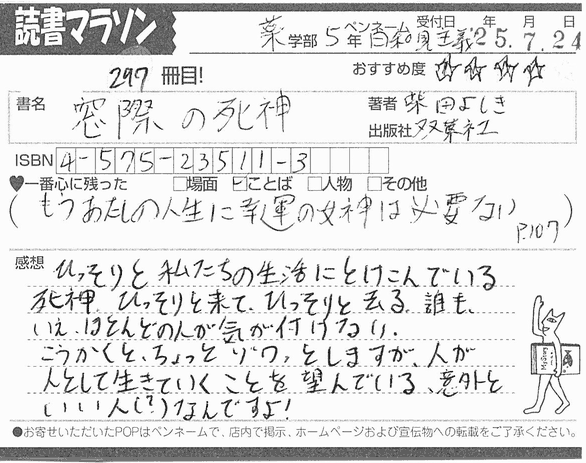 読書マラソン
薬学部 5年 ペンネーム 受付日 25年 7月 24日
297冊目! おすすめ度 ☆☆☆☆
書名 窓際の死神 著者 柴田よしき
出版社 双葉社
ISBN 4-575-23511-3
♥一番心に残った □場面 ☑ことば □人物 □その他
(もうあたしの人生に幸運の女神は必要ない P.107)
感想 ひっそりと私たちの生活にとけこんでいる
死神。ひっそりと来て、ひっそりと去る。誰も、
いえ、ほとんどの人が気が付けない。
こうかくと、ちょっとゾワッとしますが、人が
人として生きていくことを望んでいる、意外と
いい人(?)なんですよ!
●お寄せいただいたPOPはペンネームで、店内で掲示、ホームページおよび宣伝物への転載をご了承ください。